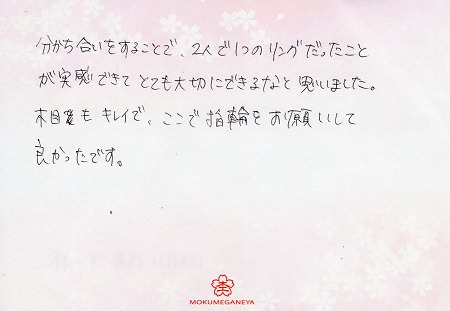 分かち合いをすることで、2人で1つのリングだったこと
が実感できてとても大切にできるなと思いました。
木目もキレイで、ここで指輪をお願いして
良かったです。
MOKUMEGANEYA